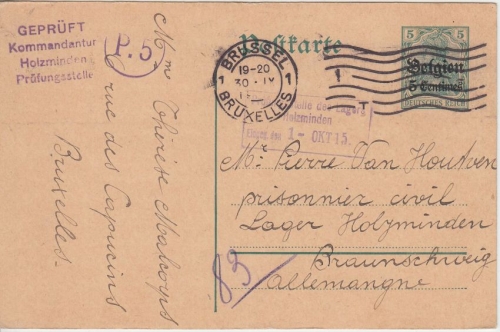 GEPRÜFT
Kommandantur
Holzminden
Prüfungsstelle
P. 5
Postkarte
BRUSSEL
19-20
30 IX
1 1
BRUXELLES
5 5
Belgien
5 Centimes
DEUTSCHES REICH
des Lagers
Holzminden
1- OKT 15.
Mr Pierre Van Houtven
prisonnier civil
Lager Holzminden
Braunschweig
Allemangne
83
Mme Thérèse Malcorps
rue des Capucins
Bruxelles.